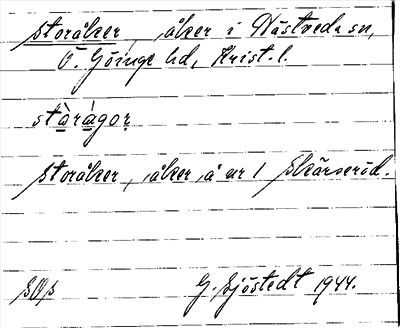 storåker, åker i Nästveds sn,
Ö. Göinge hd, Krist. l.
stòrágor
storåker, åker å nr 1 Skärseröd.
G. Sjöstedt 1944.